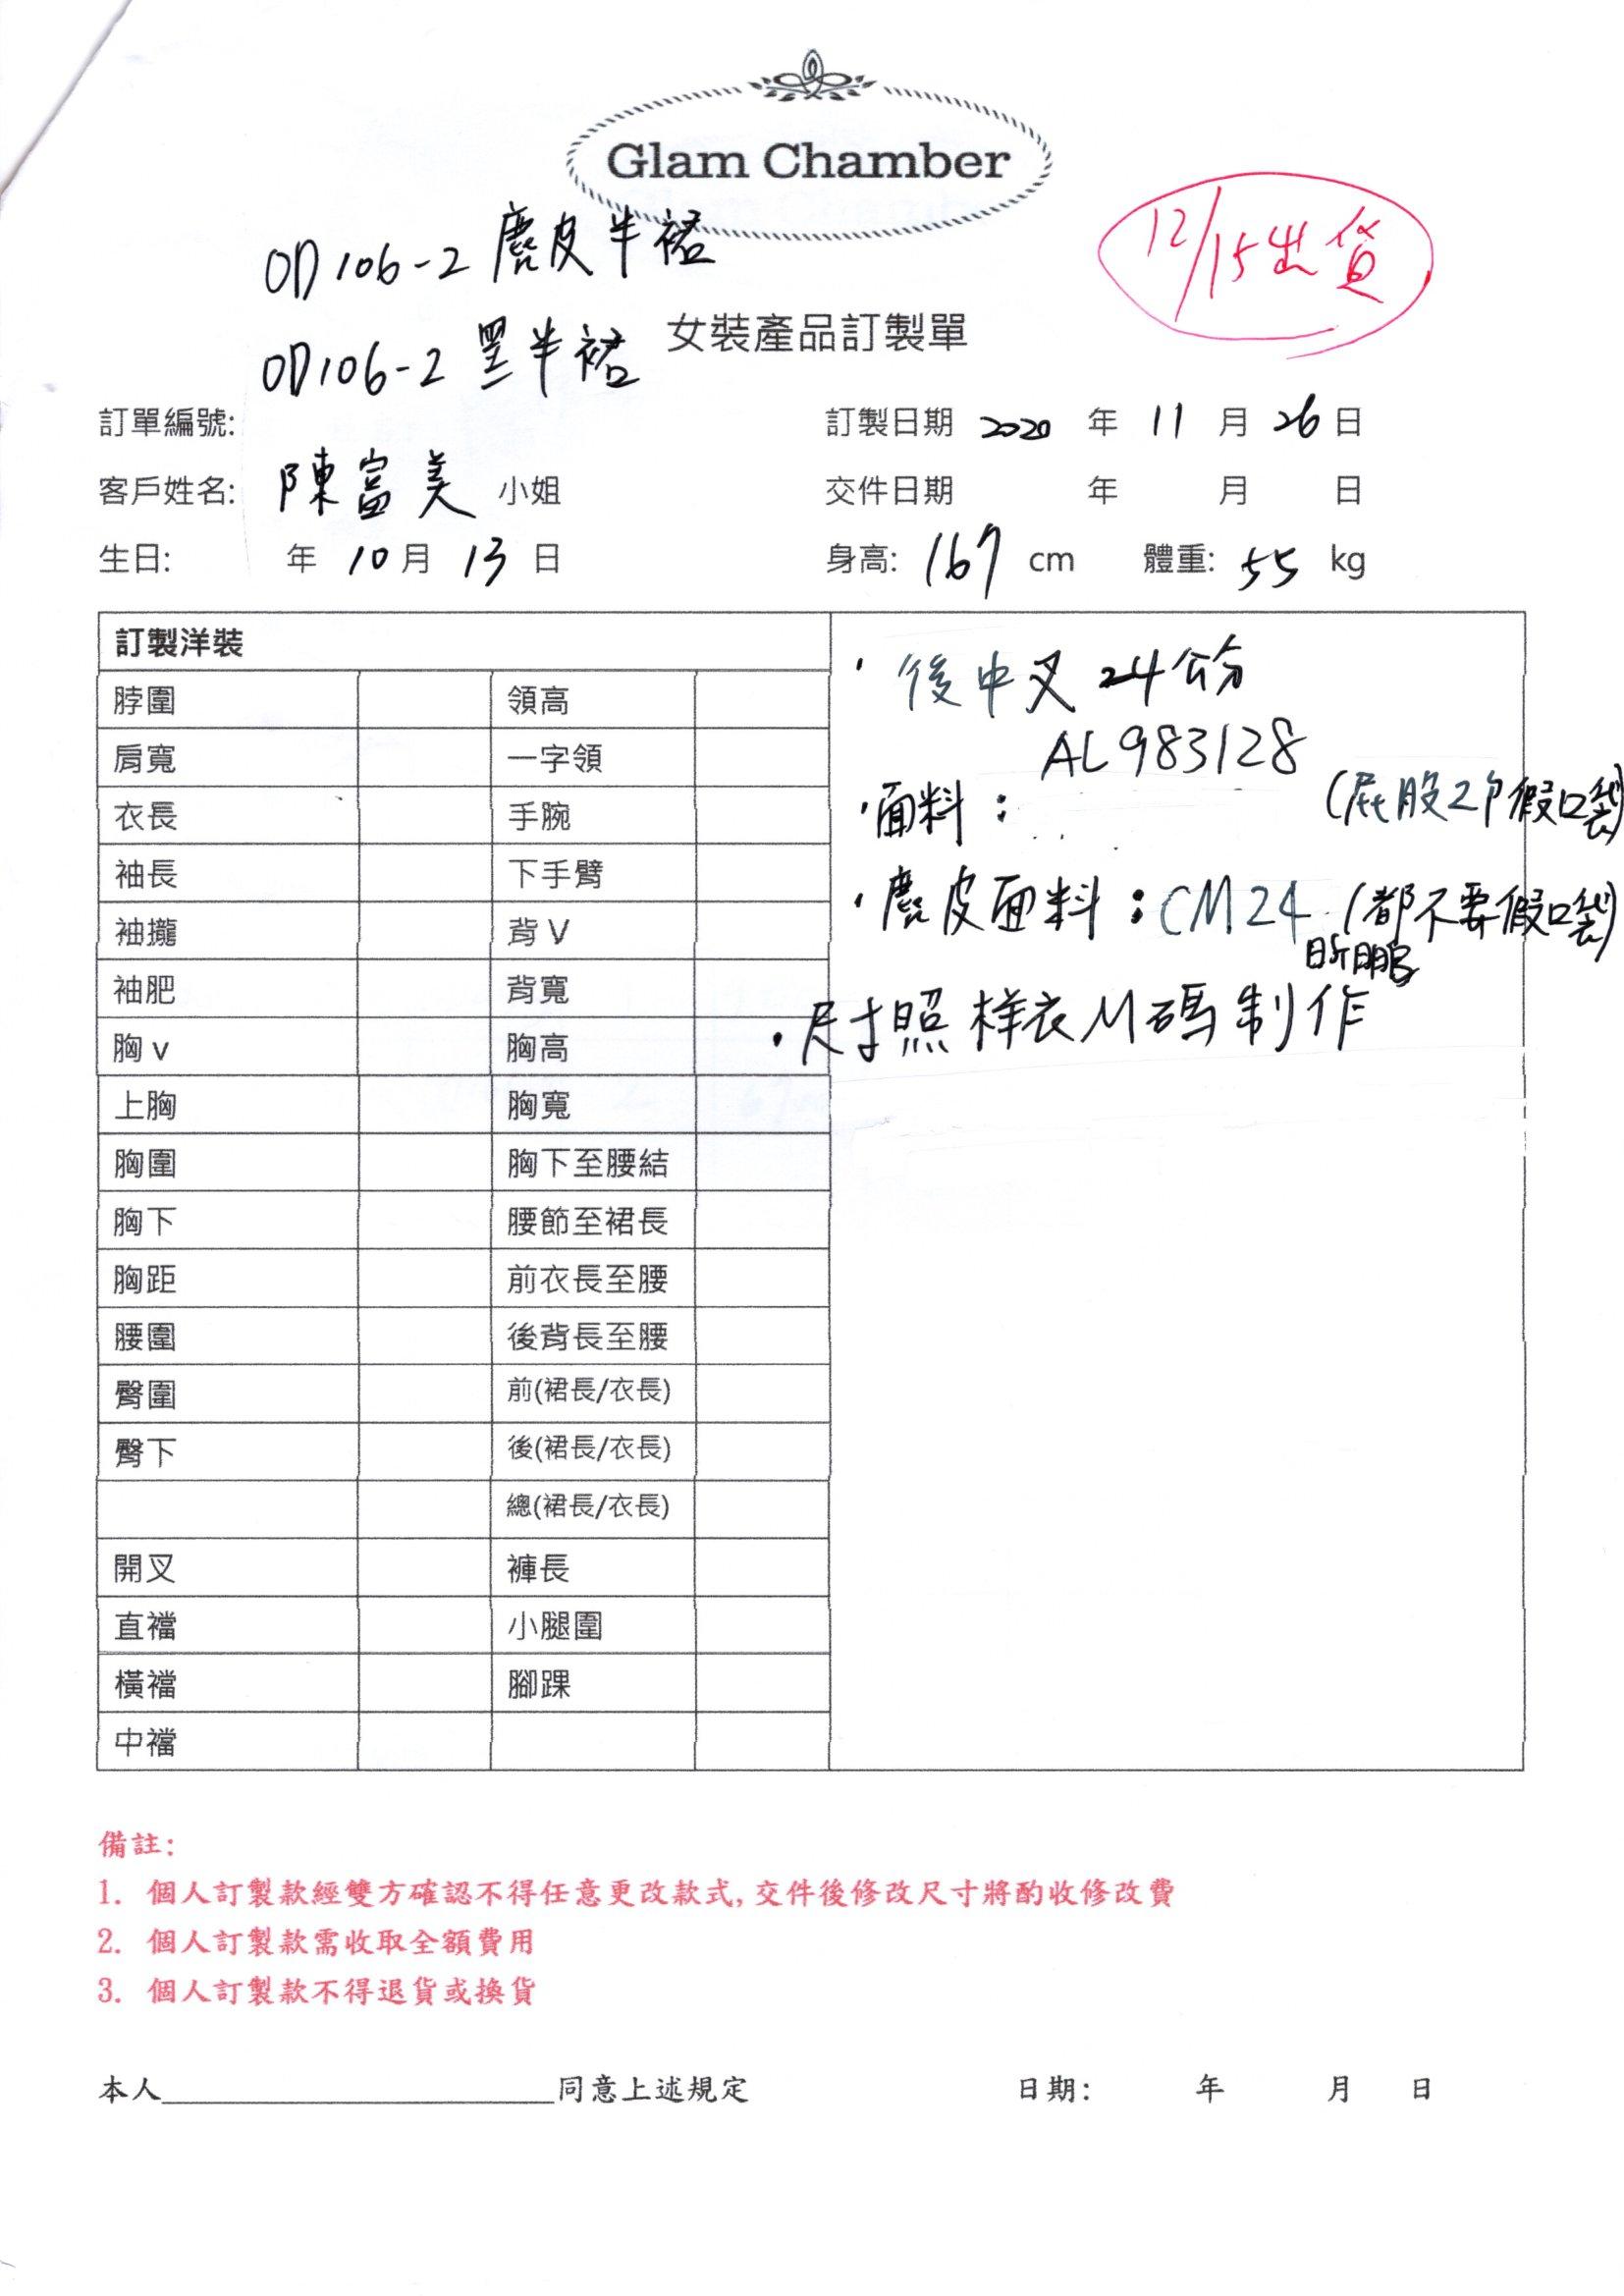 Glam Chamber
12/15出貨
OD106-2 麂皮半裙
OD106-2 黑半裙
女裝產品訂製單
訂單編號:
訂製日期 2020 年 11 月 26 日
客戶姓名: 陳富美 小姐
交件日期 年 月 日
生日: 年 10 月 13 日
身高: 167 cm 體重: 55 kg
訂製洋裝
脖圍 領高
肩寬 一字領
衣長 手腕
袖長 下手臂
袖攏 背 V
袖肥 背寬
胸 v 胸高
上胸 胸寬
胸圍 胸下至腰結
胸下 腰節至裙長
胸距 前衣長至腰
腰圍 後背長至腰
臀圍 前(裙長/衣長)
臀下 後(裙長/衣長)
總(裙長/衣長)
開叉 褲長
直襠 小腿圍
橫襠 腳踝
中襠
· 後中叉 24公分
AL983128
· 面料: (屁股2个假口袋)
· 麂皮面料: CM24 (都不要假口袋)
· 尺寸照样衣M碼制作
備註:
1. 個人訂製款經雙方確認不得任意更改款式,交件後修改尺寸將酌收修改費
2. 個人訂製款需收取全額費用
3. 個人訂製款不得退貨或換貨
本人 同意上述規定
日期: 年 月 日